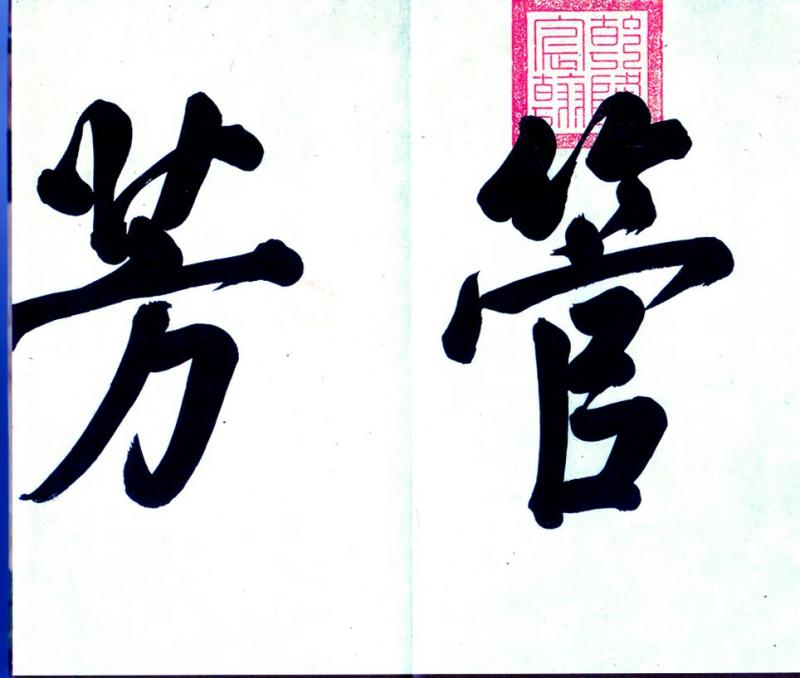 乾隆
宸翰
管芳